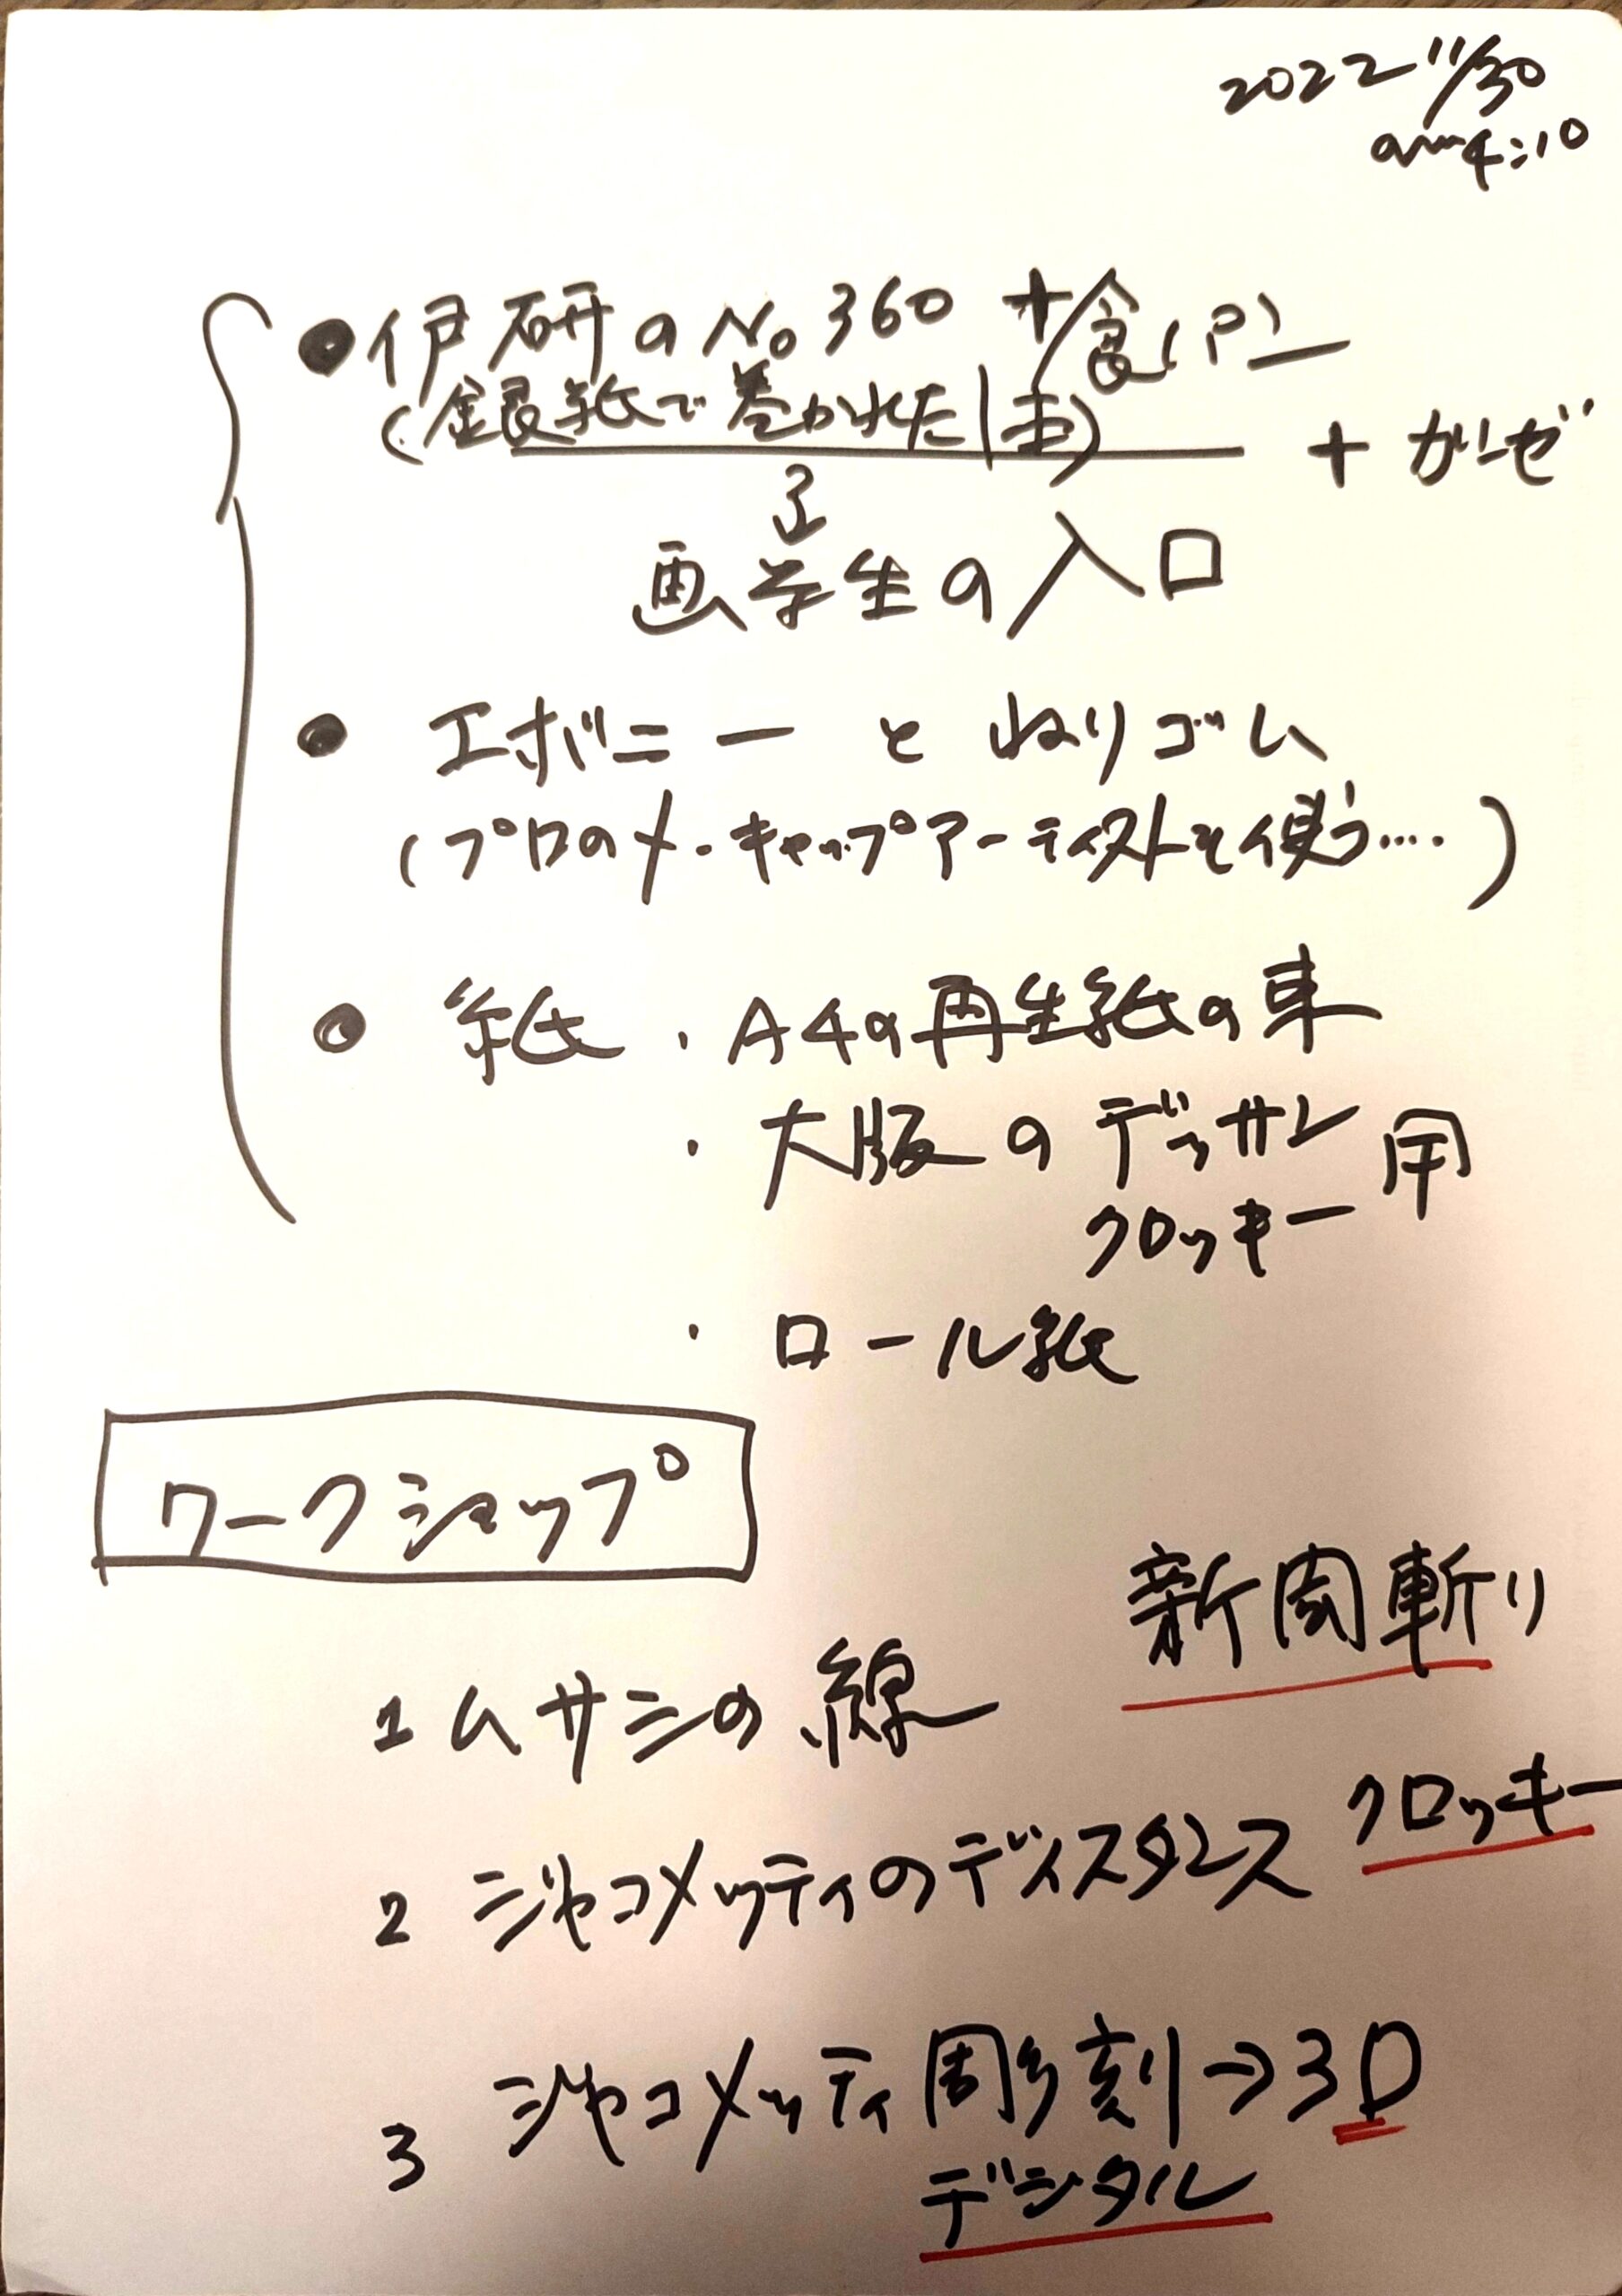 2022 11/30
am 4:10
● 伊研のNo 360 + 食(P)
(銀紙で巻かれた) + ガーゼ
画学生の入口
● エボニー と ねりゴム
(プロのメーキャップアーティストも使う‥‥)
● 紙 ・A4の再生紙の束
・大版のデッサン用
クロッキー
・ロール紙
ワークショップ
新聞斬り
1 ムサシの線
クロッキー
2 ジャコメッティのディスタンス
3 ジャコメッティ彫刻→3D
デジタル